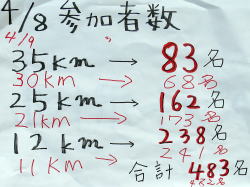 4/8 参加者数
4/9 〃
35km → 83名
30km → 68名
25km → 162名
21km → 173名
12km → 238名
11km → 241名
合計 483名
482名